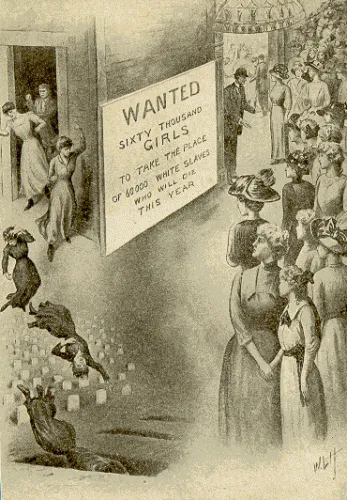 WANTED
SIXTY THOUSAND
GIRLS
TO TAKE THE PLACE
OF 60,000 WHITE SLAVES
WHO WILL DIE
THIS YEAR